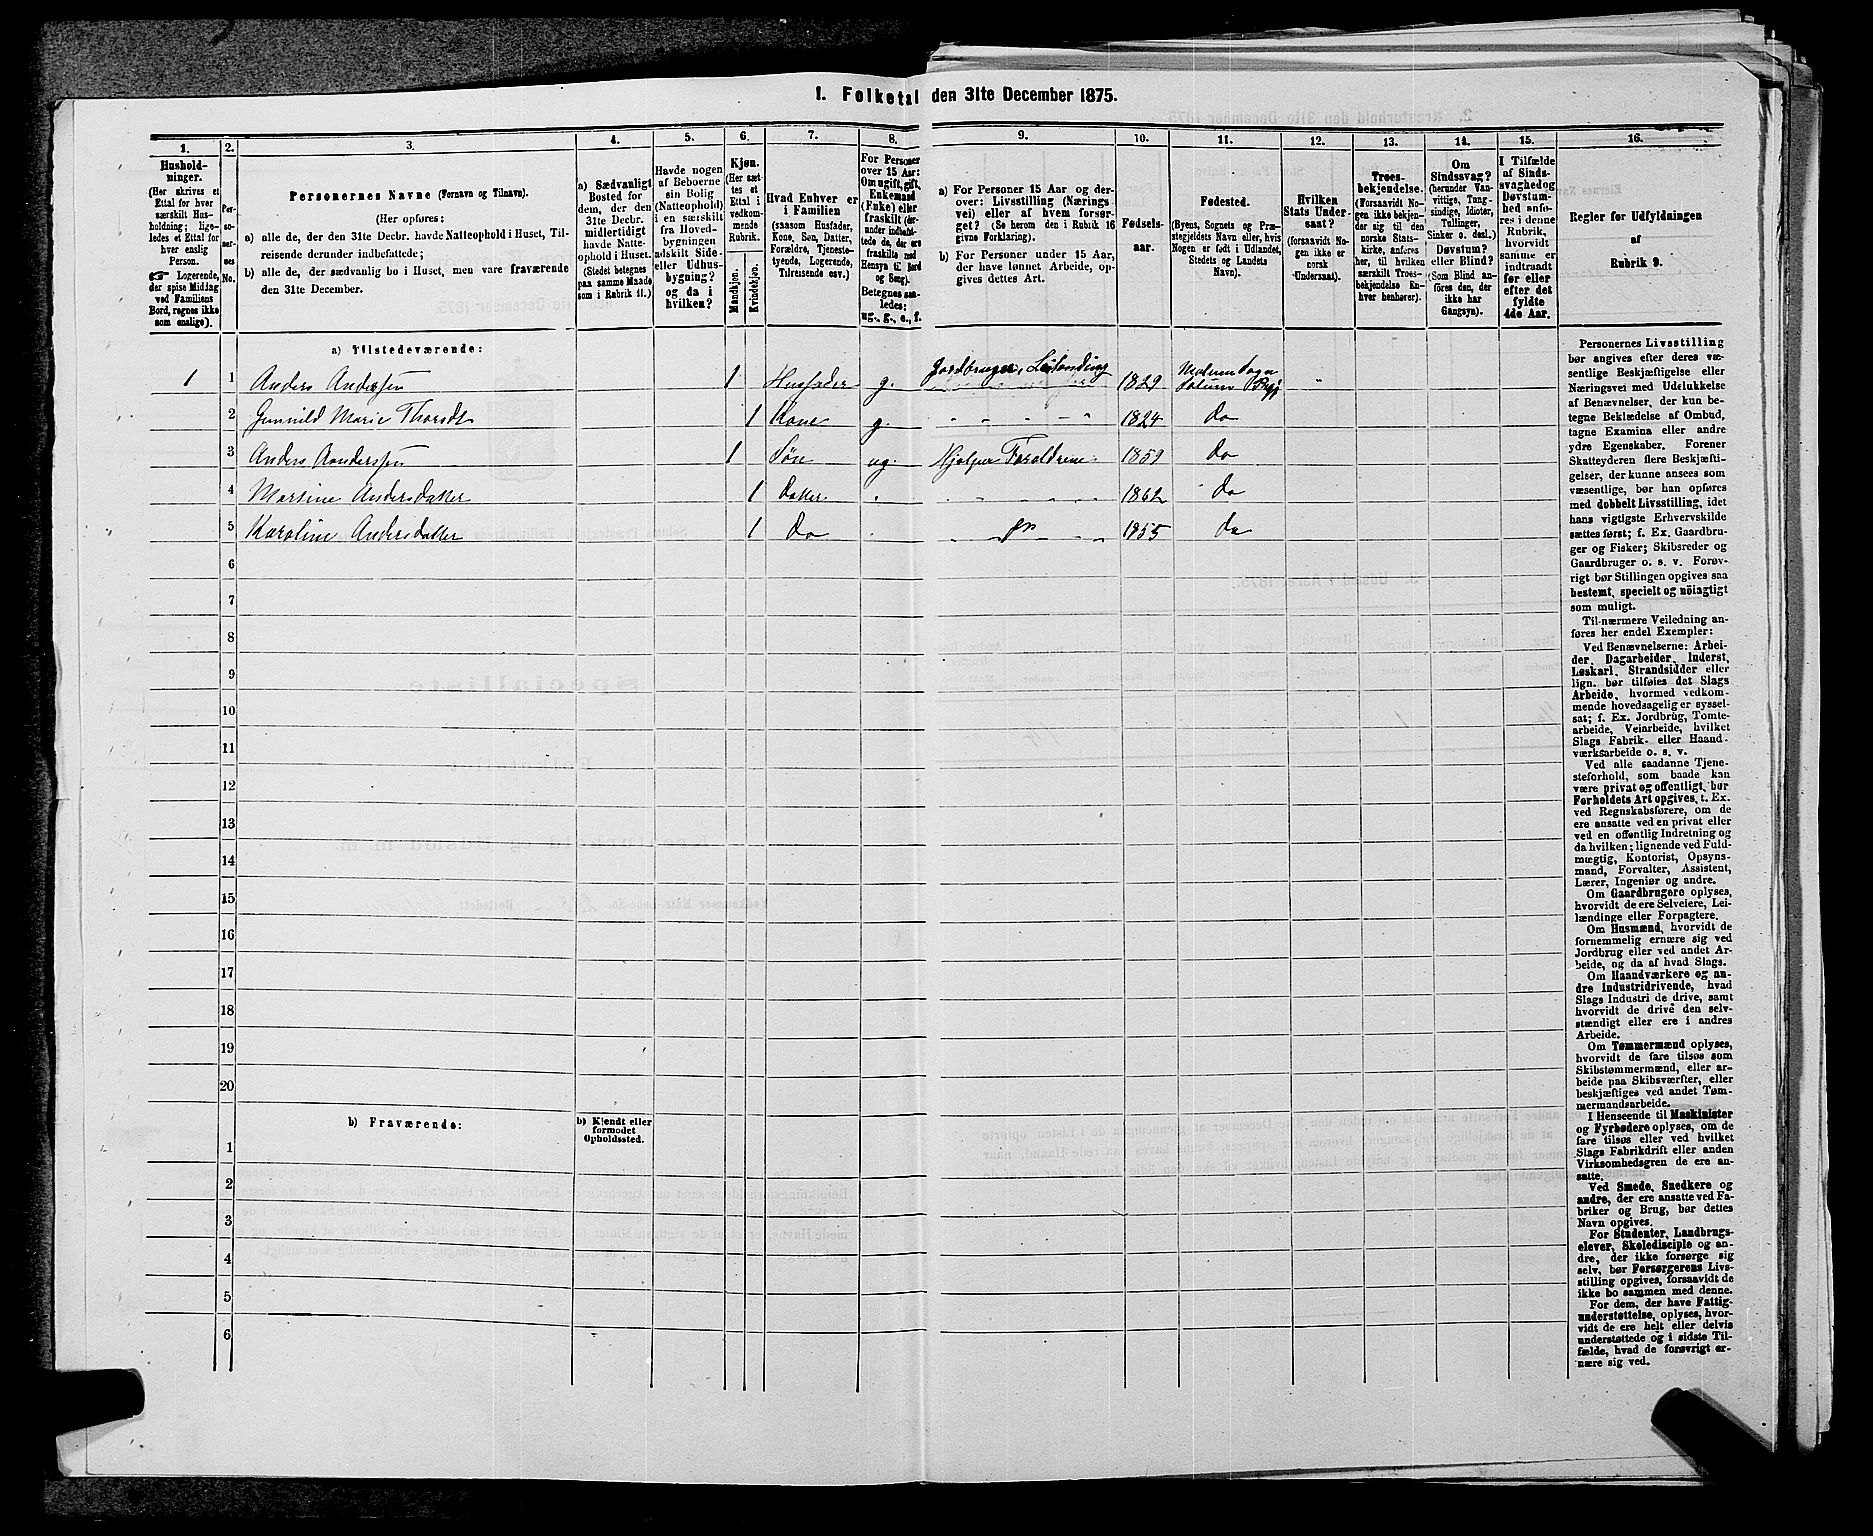 1. Folketal den 31te December 1875.
1. 2. 3. 4. 5. 6. 7. 8. 9. 10. 11. 12. 13. 14. 15. 16.
Hushold-
ninger.
(Her skrives et
Ettal for hver
særskilt Hus-
holdning; lige-
ledes et Ettal for
hver enslig
Person.
☛ Logerende,
der spise Middag
ved Familiens
Bord, regnes ikke
som enslige).
Per-
soner-
nes
No.
Personernes Navne (Fornavn og Tilnavn).
(Her opføres:
a) alle de, der den 31te Decbr. havde Natteophold i Huset, Til-
reisende derunder indbefattede;
b) alle de, der sædvanlig bo i Huset, men vare fraværende
den 31te December.
a) Sædvanligt
Bosted for
dem, der den
31te Decbr.
midlertidigt
havde Natte-
ophold i Huset.
(Stedet betegnes
paa samme Maade
som i Rubrik 11.)
Havde nogen
af Beboerne
sin Bolig
(Natteophold)
i en særskilt
fra Hoved-
bygningen
adskilt Side-
eller Udhus-
bygning?
og da i
hvilken?
Kjøn.
(Her sæt-
tes et
Ettal i
vedkom-
mende
Rubrik.
Mandkjøn.
Kvindekjøn.
Hvad Enhver er
i Familien
(saasom Husfader,
Kone, Søn, Datter,
Forældre, Tjeneste-
tyende, Logerende,
Tilreisende osv.)
For Personer
over 15 Aar:
Om ugift, gift,
Enkemand
(Enke) eller
fraskilt (der-
under indbefat-
tede de, der ere
fraskilte med
Hensyn til Bord
og Seng).
Betegnes saa-
ledes:
ug., g., e., f.
a) For Personer 15 Aar og der-
over: Livsstilling (Nærings-
vei) eller af hvem forsør-
get? (Se herom den i Rubrik 16
givne Forklaring).
b) For Personer under 15 Aar,
der have lønnet Arbeide, op-
gives dettes Art.
Fødsels-
aar.
Fødested.
(Byens, Sognets og Præ-
stegjeldets Navn eller, hvis
Nogen er født i Udlandet,
Stedets og Landets
Navn).
Hvilken
Stats Under-
saat?
(forsaavidt No-
gen ikke er
norsk
Undersaat).
Troes-
bekjendelse.
(Forsaavidt No-
gen ikke bekjen-
der sig til den
norske Stats-
kirke, anføres
her, til hvilken
særskilt Troes-
bekjendelse En-
hver henhører).
Om
Sindssvag?
(herunder Van-
vittige, Tung-
sindige, Idioter,
Tullinger,
Sinker o. desl.)
Døvstum?
eller Blind?
(Som Blind an-
føres den, der
ikke har
Gangsyn).
I Tilfælde
af Sinds-
svaghed og
Døvstum-
hed anfø-
res i denne
Rubrik,
hvorvidt
samme er
indtraadt
før eller
efter det
fyldte
4de Aar.
Regler for Udfyldningen
af
Rubrik 9.
a) Tilstedeværende:
1 1 Anders Andersen 1 Husfader g. Jordbruger, Leilænding 1829 Melum Sogn
Solum Prgj "
2 Gunnild Marie Thorsdt 1 Kone g. " " " " 1824 Do
3 Anders Andersen 1 Søn ug. Hjelper Forældrene 1859 Do
4 Martine Andersdatter 1 Datter " " " " " 1862 Do
5 Karoline Andersdatter 1 Do " " " " 1855 Do
6
7
8
9
10
11
12
13
14
15
16
17
18
19
20
b) Fraværende:
b) Kjendt eller
formodet
Opholdssted.
1
2
3
4
5
6
Personernes Livsstilling
bør angives efter deres væ-
sentlige Beskjæftigelse eller
Næringsvei med Udelukkelse
af Benævnelser, der kun be-
tegne Beklædelse af Ombud,
tagne Examina eller andre
ydre Egenskaber. Forener
Skatteyderen flere Beskjæfti-
gelser, der kunne ansees som
væsentlige, bør han opføres
med dobbelt Livsstilling, idet
hans vigtigste Erhvervskilde
sættes først; f. Ex. Gaardbru-
ger og Fisker; Skibsreder og
Gaardbruger o. s. v. Forøv-
rigt bør Stillingen opgives saa
bestemt, specielt og nöiagtigt
som muligt.
Til nærmere Veiledning an-
føres her endel Exempler:
Ved Benævnelserne: Arbei-
der, Dagarbeider, Inderst,
Løskarl, Strandsidder eller
lign. bør tilføies det Slags
Arbeide, hvormed vedkom-
mende hovedsagelig er syssel-
sat; f. Ex. Jordbrug, Tomte-
arbeide, Veiarbeide, hvilket
Slags Fabrik- eller Haand-
værksarbeide o. s. v.
Ved alle saadanne Tjene-
steforhold, som baade kan
være privat og offentligt, bør
Forholdets Art opgives, t. Ex.
ved Regnskabsførere, om de
ere ansatte ved en privat eller
ved en offentlig Indretning og
da hvilken; lignende ved Fuld-
mægtig, Kontorist, Opsyns-
mand, Forvalter, Assistent,
Lærer, Ingeniør og andre.
Om Gaardbrugere oplyses,
hvorvidt de ere Selveiere, Lei-
lændinge eller Forpagtere.
Om Husmænd, hvorvidt de
fornemmelig ernære sig ved
Jordbrug eller ved andet Ar-
beide, og da af hvad Slags.
Om Haandværkere og an-
dre Industridrivende, hvad
Slags Industri de drive, samt
hvorvidt de drive den selv-
stændigt eller ere i andres
Arbeide.
Om Tømmermænd oplyses,
hvorvidt de fare tilsøs som
Skibstømmermænd, eller ar-
beide paa Skibsværfter, eller
beskjæftiges ved andet Tøm-
mermandsarbeide.
I Henseende til Maskinister
og Fyrbødere oplyses, om de
fare tilsøs eller ved hvilket
Slags Fabrikdrift eller anden
Virksomhedsgren de ere an-
satte.
Ved Smede, Snedkere og
andre, der ere ansatte ved Fa-
briker og Brug, bør dettes
Navn opgives.
For Studenter, Landbrugs-
elever, Skoledisciple og an-
dre, der ikke forsørge sig
selv, bør Forsørgerens Livs-
stilling opgives, forsaavidt de
ikke bo sammen med denne.
For dem, der have Fattig-
understøttelse, oplyses, hvor-
vidt de ere helt eller delvis
understøttede og i sidste Til-
fælde, hvad de forøvrigt er-
nære sig ved.